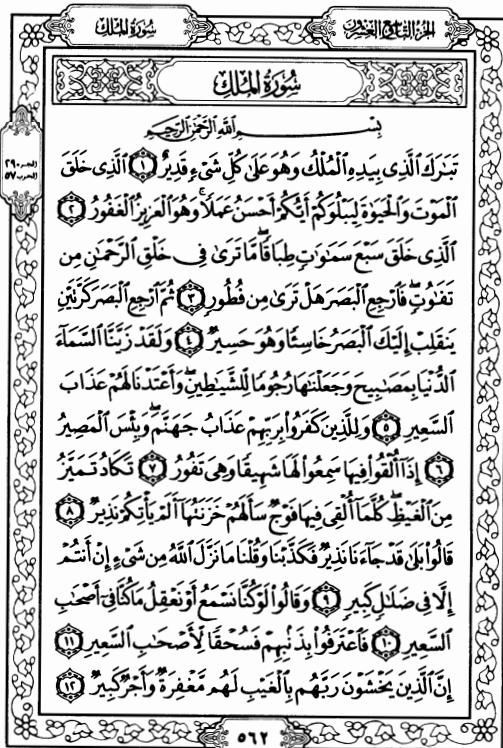 الجزء التاسع والعشرون
سُورَةُ المُلْكِ
سُورَةُ المُلْكِ
بِسْمِ اللَّهِ الرَّحْمَٰنِ الرَّحِيمِ
الجزء ٢٩
الحزب ٥٧
تَبَٰرَكَ ٱلَّذِى بِيَدِهِ ٱلْمُلْكُ وَهُوَ عَلَىٰ كُلِّ شَىْءٍ قَدِيرٌ ۝١ ٱلَّذِى خَلَقَ
ٱلْمَوْتَ وَٱلْحَيَوٰةَ لِيَبْلُوَكُمْ أَيُّكُمْ أَحْسَنُ عَمَلًا ۚ وَهُوَ ٱلْعَزِيزُ ٱلْغَفُورُ ۝٢
ٱلَّذِى خَلَقَ سَبْعَ سَمَٰوَٰتٍ طِبَاقًا ۖ مَّا تَرَىٰ فِى خَلْقِ ٱلرَّحْمَٰنِ مِن
تَفَٰوُتٍ ۖ فَٱرْجِعِ ٱلْبَصَرَ هَلْ تَرَىٰ مِن فُطُورٍ ۝٣ ثُمَّ ٱرْجِعِ ٱلْبَصَرَ كَرَّتَيْنِ
يَنقَلِبْ إِلَيْكَ ٱلْبَصَرُ خَاسِئًا وَهُوَ حَسِيرٌ ۝٤ وَلَقَدْ زَيَّنَّا ٱلسَّمَآءَ
ٱلدُّنْيَا بِمَصَٰبِيحَ وَجَعَلْنَٰهَا رُجُومًا لِّلشَّيَٰطِينِ ۖ وَأَعْتَدْنَا لَهُمْ عَذَابَ
ٱلسَّعِيرِ ۝٥ وَلِلَّذِينَ كَفَرُوا۟ بِرَبِّهِمْ عَذَابُ جَهَنَّمَ ۖ وَبِئْسَ ٱلْمَصِيرُ
۝٦ إِذَآ أُلْقُوا۟ فِيهَا سَمِعُوا۟ لَهَا شَهِيقًا وَهِىَ تَفُورُ ۝٧ تَكَادُ تَمَيَّزُ
مِنَ ٱلْغَيْظِ ۖ كُلَّمَآ أُلْقِىَ فِيهَا فَوْجٌ سَأَلَهُمْ خَزَنَتُهَآ أَلَمْ يَأْتِكُمْ نَذِيرٌ ۝٨
قَالُوا۟ بَلَىٰ قَدْ جَآءَنَا نَذِيرٌ فَكَذَّبْنَا وَقُلْنَا مَا نَزَّلَ ٱللَّهُ مِن شَىْءٍ إِنْ أَنتُمْ
إِلَّا فِى ضَلَٰلٍ كَبِيرٍ ۝٩ وَقَالُوا۟ لَوْ كُنَّا نَسْمَعُ أَوْ نَعْقِلُ مَا كُنَّا فِىٓ أَصْحَٰبِ
ٱلسَّعِيرِ ۝١٠ فَٱعْتَرَفُوا۟ بِذَنۢبِهِمْ فَسُحْقًا لِّأَصْحَٰبِ ٱلسَّعِيرِ ۝١١
إِنَّ ٱلَّذِينَ يَخْشَوْنَ رَبَّهُم بِٱلْغَيْبِ لَهُم مَّغْفِرَةٌ وَأَجْرٌ كَبِيرٌ ۝١٢
٥٦٢